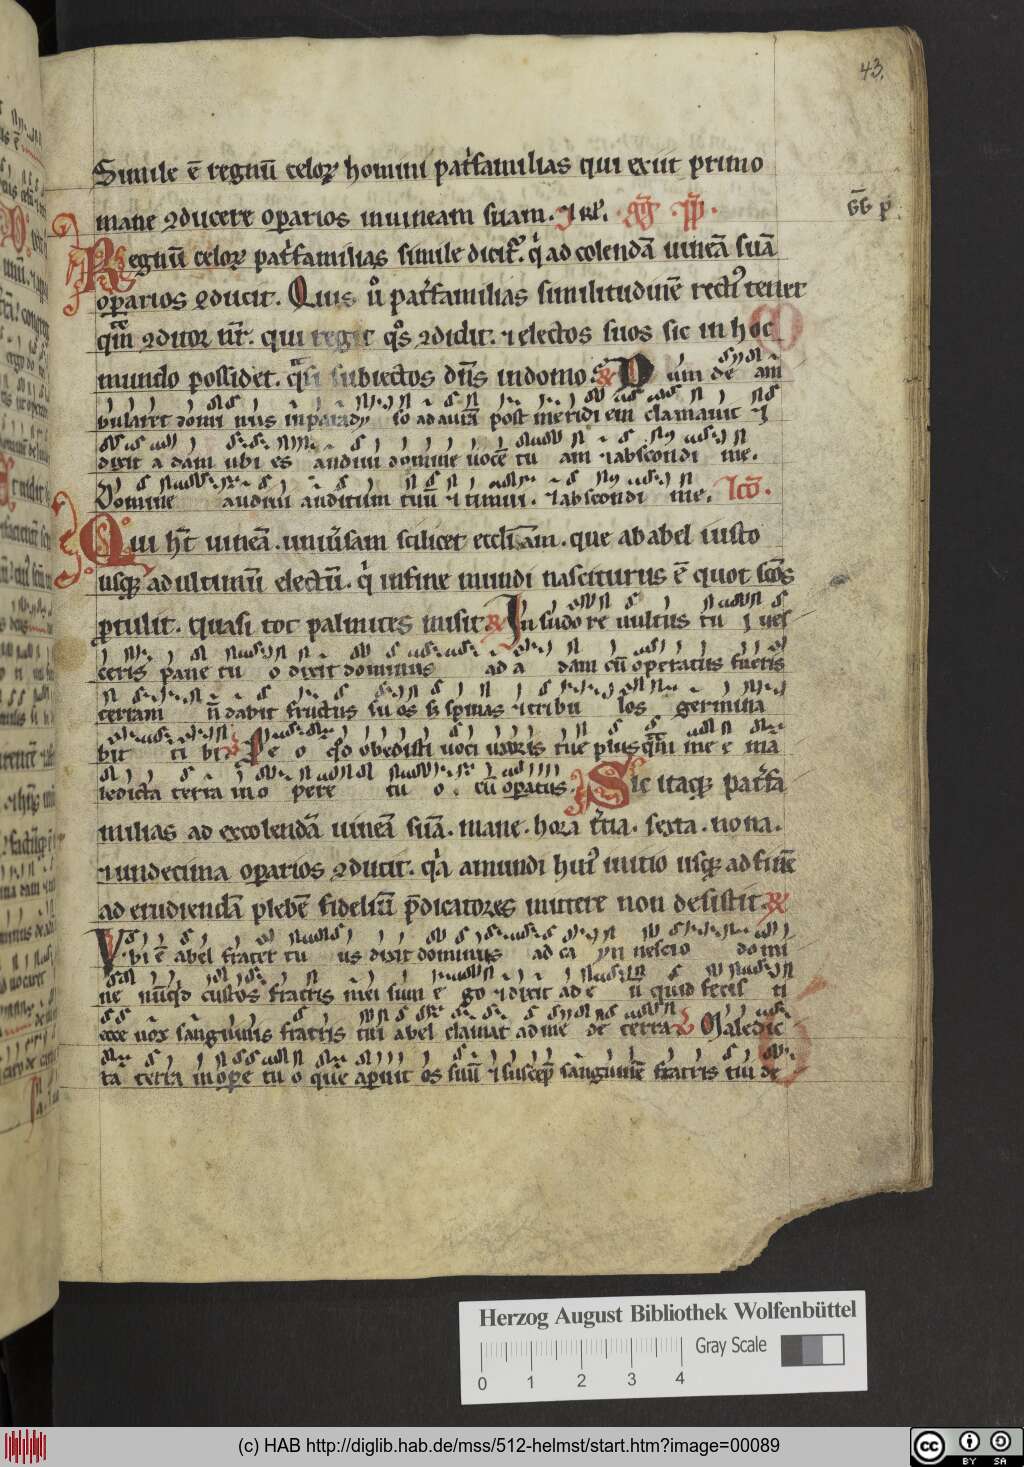 43.
Simile ē regnū celoꝝ homini pat̉familias qui exiit primo
mane ꝯducere oꝑarios in uineam suam. ⁊ rł. Gḡ pp̄.
Gḡ p̄
Regnū celoꝝ pat̉familias simile dicit᷑. q̇ ad colendā uineā suā
oꝑarios ꝯducit. Quis u̾o pat̉familias similitudinē recti᷒ tenet
quā ꝯditor nr̄. qui regit q̊s ꝯdidit. ⁊ electos suos sic in hoc
mundo possidet. q̄si subiectos dn̄s in domo s. Dum deam
bularet domin us in paradyso ad aurā post meridiem clamauit ⁊
dixit adam ubi es audiui domine uocē tuam ⁊ abscondi me.
Domine audiui auditum tuū ⁊ timui. ⁊ abscondi me. Lc̄o.
Qui hꝫ uineā. uniu̾sam scilicet eccl̄iam. que ab abel iusto
usqꝫ ad ultimū electū. q̇ in fine mundi nasciturus ē quot sc̄os
ꝓtulit. quasi tot palmites misit In sudore uultus tu i ues
ceris pane tu o dixit dominus ad adam cū operatus fueris
terram n̄ dabit fructus suos sꝫ spinas ⁊ tribulos germina
bit tibi Pro eo qd̄ obedisti uoci uxoris tue plus quā me e ma
ledicta terra in opere tuo. cū opatus. Sic itaqꝫ pat̉fa
milias ad excolendā uineā suā. mane. hora t̉cia. sexta. nona.
⁊ undecima oꝑarios ꝯducit. q̇a a mundi hui᷒ initio usqꝫ ad finē
ad erudiendā plebē fidelium p̄dicatores mittere non desistit.
Vbi ē abel frater tuus dixit dominus ad cayn nescio domi
ne nūqd̄ custos fratris mei sum ego ⁊ dixit ad eū quid fecisti
ecce uox sanguinis fratris tui abel clamat ad me de terra Maledic
ta terra in opere tuo que aperuit os suū ⁊ suscepꝫ sanguinē fratris tui de
Herzog August Bibliothek Wolfenbüttel
Gray Scale
0 1 2 3 4
(c) HAB http://diglib.hab.de/mss/512-helmst/start.htm?image=00089
cc BY SA